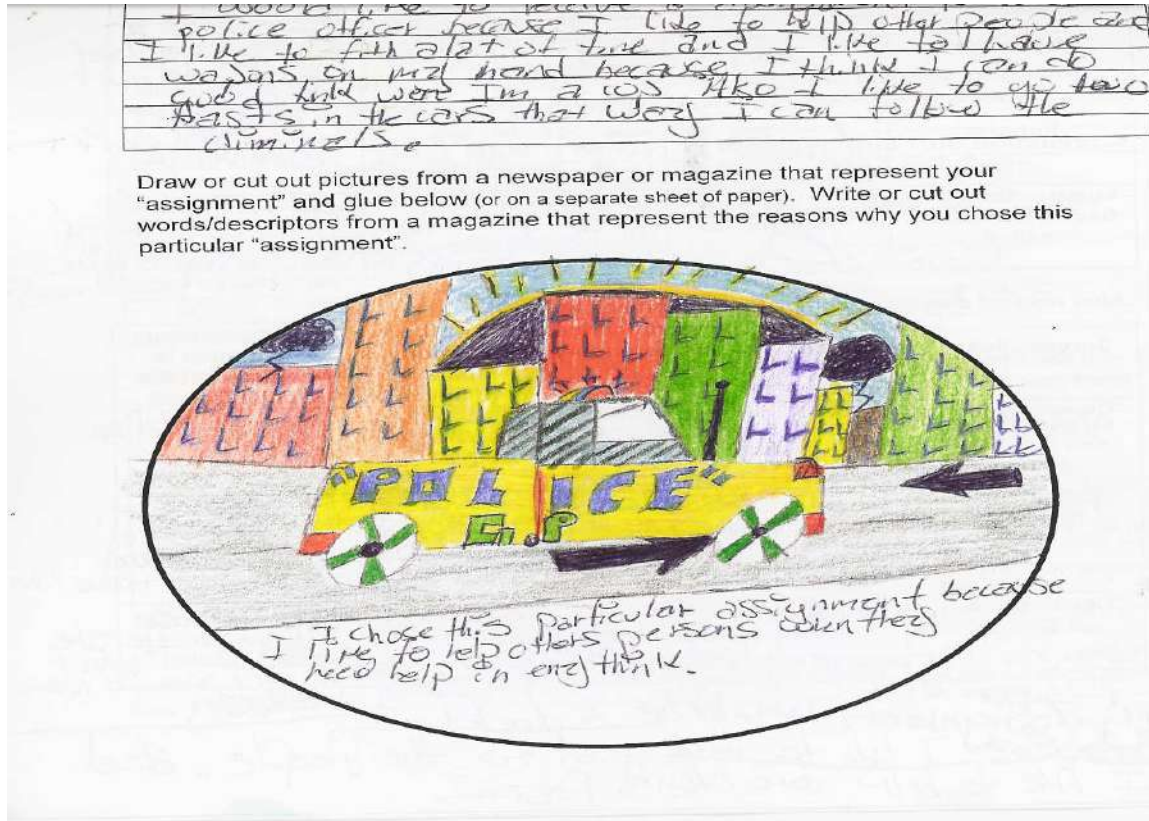 I would like to receive
police officer because I like to help other people and
I like to fith alat of time and I like to have
on my hand because I think I can do
good think wen I'm a cos Also I like to go
fasts in the cars that way I can follow the
criminels.
Draw or cut out pictures from a newspaper or magazine that represent your
“assignment” and glue below (or on a separate sheet of paper). Write or cut out
words/descriptors from a magazine that represent the reasons why you chose this
particular “assignment”.
"POLICE"
I chose this particular assignment because
I like to help others persons when they
need help in eny think.